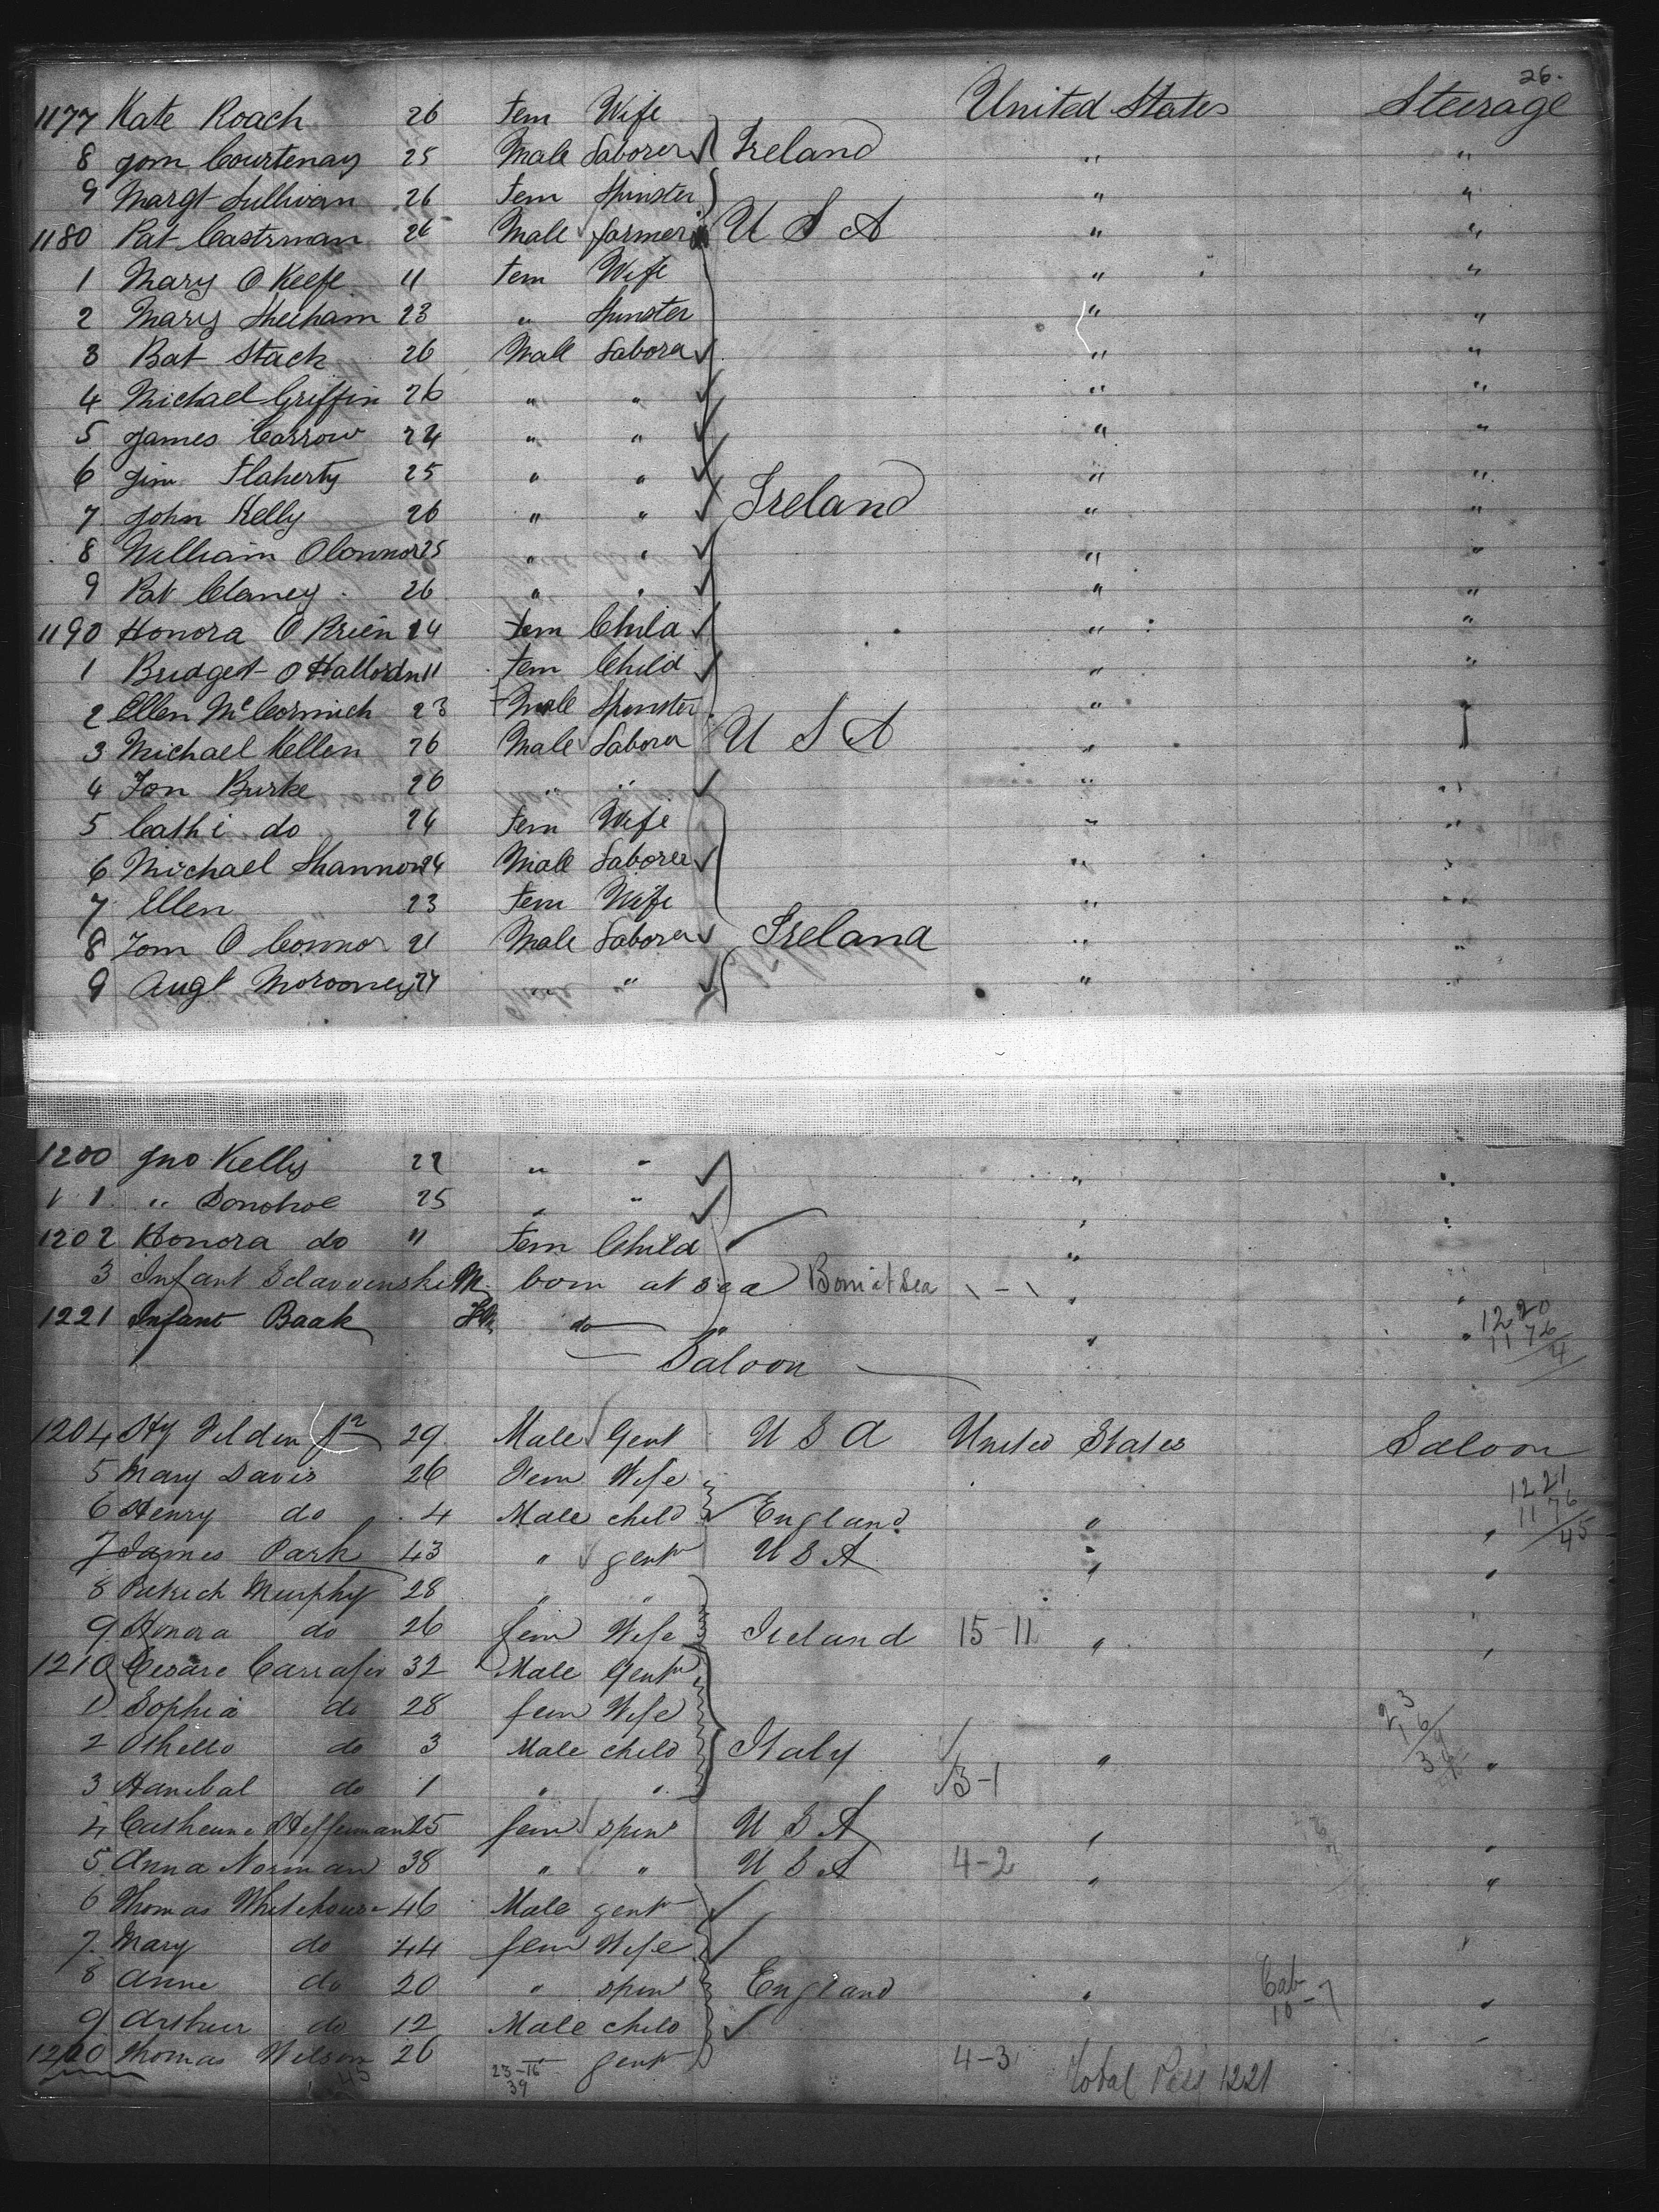 26.
1177 Kate Roach 26 Fem Wife United States Steerage
8 Tom Courtenay 25 Male Laborer Ireland " "
9 Margt Sullivan 26 Fem Spinster " "
1180 Pat 26 Male farmer U S A " "
1 Mary O Keefe 11 Fem Wife " "
2 Mary Sheeham 23 " Spinster " "
3 Bat Stack 26 Male Labora " "
4 Michael Griffin 26 " " " "
5 James Carrow 24 " " " "
6 Jim Flaherty 25 " " " "
7 John Kelly 26 " " Ireland " "
8 William OConnor 25 " " " "
9 Pat Clancy 26 " " " "
1190 Honora O Brien 14 Fem Child " "
1 Bridget O Halloran 11 Fem Child " "
2 Ellen McCormick 23 Male Spinster "
3 Michael Kellen 26 Male Labora U S A "
4 Jon Burke 26 " " " "
5 Cathi do 24 Fem Wife " "
6 Michael Shannon 24 Male Laborer " "
7 Ellen " 23 Fem Wife " "
8 Tom O Connor 21 Male Laborer Ireland " "
9 Augt Morooney 24 " " " "
1200 Jno Kelly 22 " " " "
1 " Donohoe 25 " " " "
1202 Honora do 11 Fem Child "
3 Infant M born at sea Born at Sea " "
1221 Infant Baak do " " 1220
1176
Saloon
1204 Hy Tilden Jr 29 Male Gent U S A United States Saloon
5 Mary Davis 26 Fem Wife 1221
6 Henry do 4 Male child England " " 1176
45
7 James Park 43 " gent U S A " "
8 Patrick Murphy 28 " " "
9 Honora do 26 fem Wife Ireland 15-11 " "
1210 Cesare 32 Male Gent
1 Sophia do 28 fem Wife
2 Othello do 3 Male child Italy " "
3 Hanibal do 1 " " 3-1
4 Catherine Heffernan 25 fem spin U S A " "
5 Anna Norman 38 " " U S A 4-2 " "
6 Thomas Whitehouse 46 Male gent
7 Mary do 44 fem Wife "
8 Anne do 20 " spin England " Cab "
10-7
9 Arthur do 12 Male child "
1220 Thomas Wilson 26 gent 4-3 Total Pass 1221
45 23-16
39